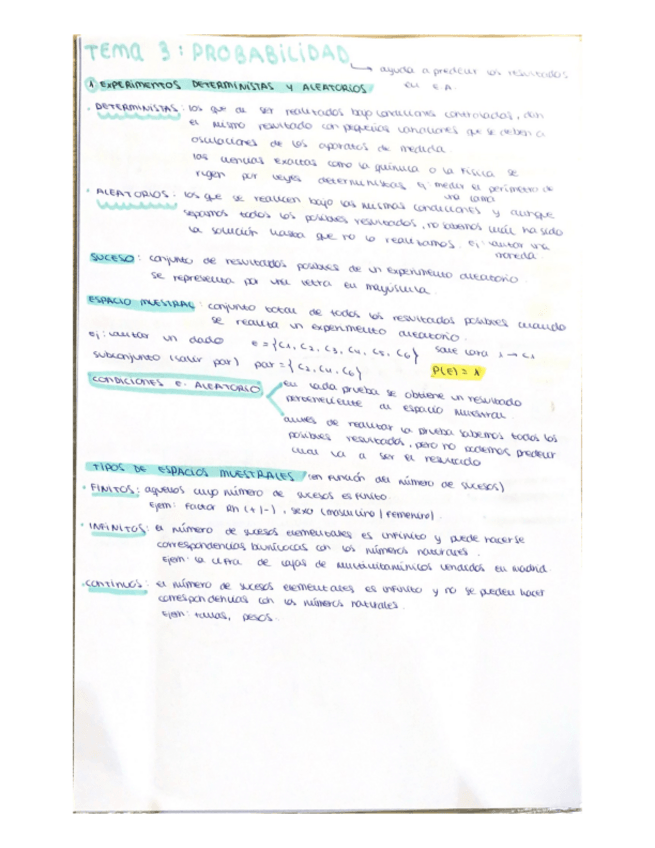 TEMA 3: PROBABILIDAD
→ ayuda a predecir los resultados
en E.A.
1 EXPERIMENTOS DETERMINISTAS Y ALEATORIOS
· DETERMINISTAS: los que al ser realizados bajo condiciones controladas, dan
el mismo resultado con pequeñas variaciones que se deben a
oscilaciones de los aparatos de medida.
las ciencias exactas como la química o la física se
rigen por leyes deterministas ej: medir el perímetro de
una cama
· ALEATORIOS: los que se realicen bajo las mismas condiciones y aunque
sepamos todos los posibles resultados, no sabemos cuál ha sido
la solución hasta que no lo realizamos. ej: lanzar una
moneda.
SUCESO: conjunto de resultados posibles de un experimento aleatorio.
se representa por una letra en mayúscula.
ESPACIO MUESTRAL: conjunto total de todos los resultados posibles cuando
se realiza un experimento aleatorio.
ej: lanzar un dado e = {C1, C2, C3, C4, C5, C6} sale cara 1 → C1
subconjunto (salir par) par = {C2, C4, C6} P(E) = 1
CONDICIONES E. ALEATORIO
en cada prueba se obtiene un resultado
perteneciente al espacio muestral.
antes de realizar la prueba sabemos todos los
posibles resultados, pero no podemos predecir
cual va a ser el resultado
TIPOS DE ESPACIOS MUESTRALES (en función del número de sucesos)
· FINITOS: aquellos cuyo número de sucesos es finito.
Ejem: Factor Rh (+/-), sexo (masculino/femenino).
· INFINITOS: el número de sucesos elementales es infinito y puede hacerse
correspondencias biunívocas con los números naturales.
Ejem: la cifra de cajas de multivitamínicos vendidos en Madrid
· CONTINUOS: el número de sucesos elementales es infinito y no se pueden hacer
correspondencias con los números naturales.
Ejem: tallas, pesos.